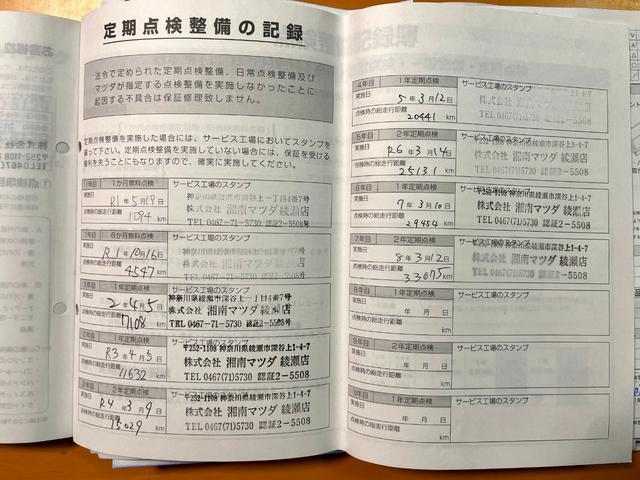 定期点検整備の記録
法令で定められた定期点検整備、日常点検整備及び
マツダが指定する点検整備を実施しなかったことに
起因する不具合は保証修理致しません。
定期点検整備を実施した場合には、サービス工場においてスタンプを
貰って下さい。定期点検整備を実施していない場合には、保証を受ける
権利を失うことにもなりますので、確実に実施してください。
1年目 1か月無料点検 サービス工場のスタンプ
実施日 R1年5月19日 神奈川県綾瀬市深谷上一丁目4番7号
点検時の総走行距離 株式会社 湘南マツダ 綾瀬店
1094 km TEL 0467-71-5730 認証2-5508
1年目 6か月無料点検 サービス工場のスタンプ
実施日 R1年10月16日
点検時の総走行距離 株式会社 湘南マツダ 綾瀬店
4547 km TEL 0467-71-5730 認証2-5508
1年目 1年定期点検 サービス工場のスタンプ
実施日 2年4月5日 神奈川県綾瀬市深谷上一丁目4番7号
点検時の総走行距離 株式会社 湘南マツダ 綾瀬店
7108 km TEL 0467-71-5730 認証2-5508
2年目 1年定期点検 サービス工場のスタンプ
実施日 R3年4月5日 〒252-1108 神奈川県綾瀬市深谷上1-4-7
点検時の総走行距離 株式会社 湘南マツダ 綾瀬店
11632 km TEL 0467(71)5730 認証2-5508
3年目 2年定期点検 サービス工場のスタンプ
実施日 R4年3月9日 〒252-1108 神奈川県綾瀬市深谷上1-4-7
点検時の総走行距離 株式会社 湘南マツダ 綾瀬店
15029 km TEL 0467(71)5730 認証2-5508
4年目 1年定期点検 サービス工場のスタンプ
実施日 5年3月12日
点検時の総走行距離 株式会社 湘南マツダ 綾瀬店
20441 km TEL 0467(71)5730 認証2-5508
5年目 2年定期点検 サービス工場のスタンプ
実施日 R6年3月14日
点検時の総走行距離 株式会社 湘南マツダ 綾瀬店
25131 km TEL 0467(71)5730 認証2-5508
6年目 1年定期点検 サービス工場のスタンプ
実施日 7年3月10日
点検時の総走行距離 株式会社 湘南マツダ 綾瀬店
29454 km TEL 0467(71)5730 認証2-5508
7年目 2年定期点検 サービス工場のスタンプ
実施日 8年3月12日
点検時の総走行距離 株式会社 湘南マツダ 綾瀬店
33675 km TEL 0467(71)5730 認証2-5508
8年目 1年定期点検 サービス工場のスタンプ
実施日 年 月 日
点検時の総走行距離
km
9年目 2年定期点検 サービス工場のスタンプ
実施日 年 月 日
点検時の総走行距離
km
1年定期点検 サービス工場のスタンプ
実施日 年 月 日
点検時の総走行距離
km